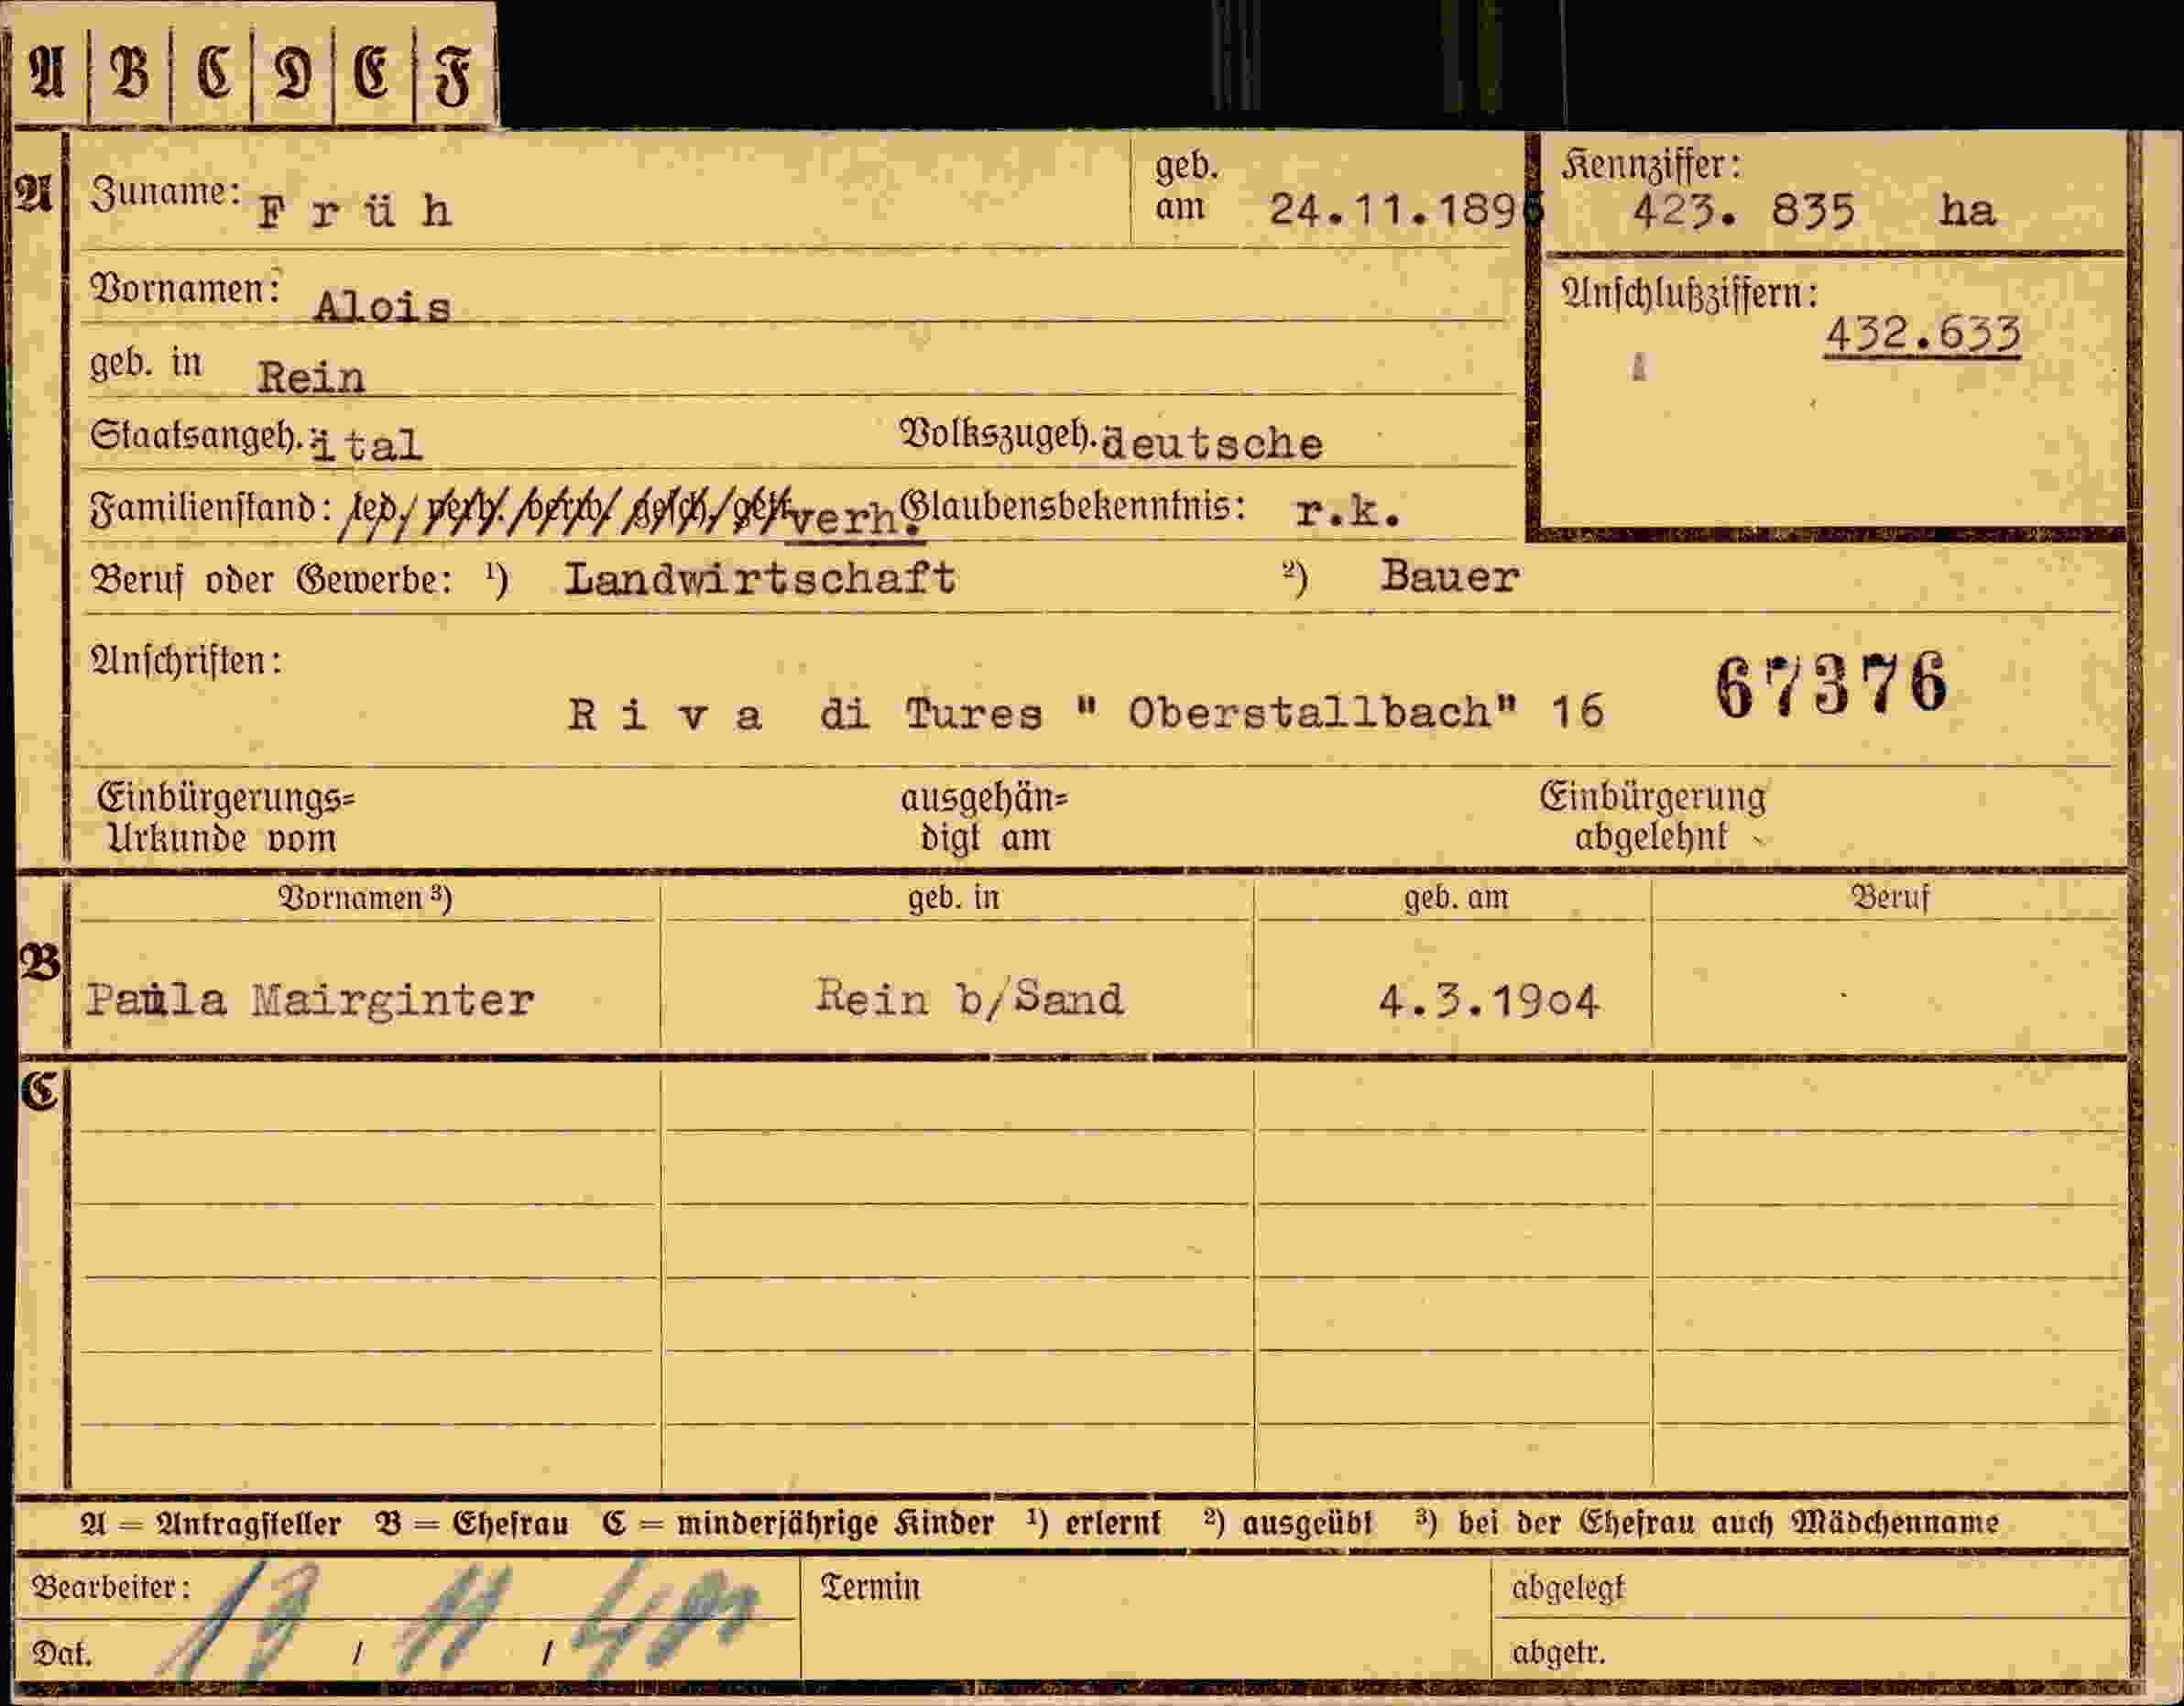 A B C D E F
A Zuname: Früh geb. am 24.11.1895 Kennziffer: 423. 835 ha
Vornamen: Alois Anschlußziffern: 432.633
geb. in Rein
Staatsangeh. ital Volkszugeh. deutsche
Familienstand: led./ verh./ verw./ gesch./ getr. verh. Glaubensbekenntnis: r.k.
Beruf oder Gewerbe: ¹) Landwirtschaft ²) Bauer
Anschriften:
Riva di Tures " Oberstallbach" 16 67376
Einbürgerungs= ausgehän= Einbürgerung
Urkunde vom digt am abgelehnt
Vornamen ³) geb. in geb. am Beruf
B Paula Mairginter Rein b/Sand 4.3.1904
C
A = Antragsteller B = Ehefrau C = minderjährige Kinder ¹) erlernt ²) ausgeübt ³) bei der Ehefrau auch Mädchenname
Bearbeiter: Termin abgelegt
Dat. / 11 / abgetr.